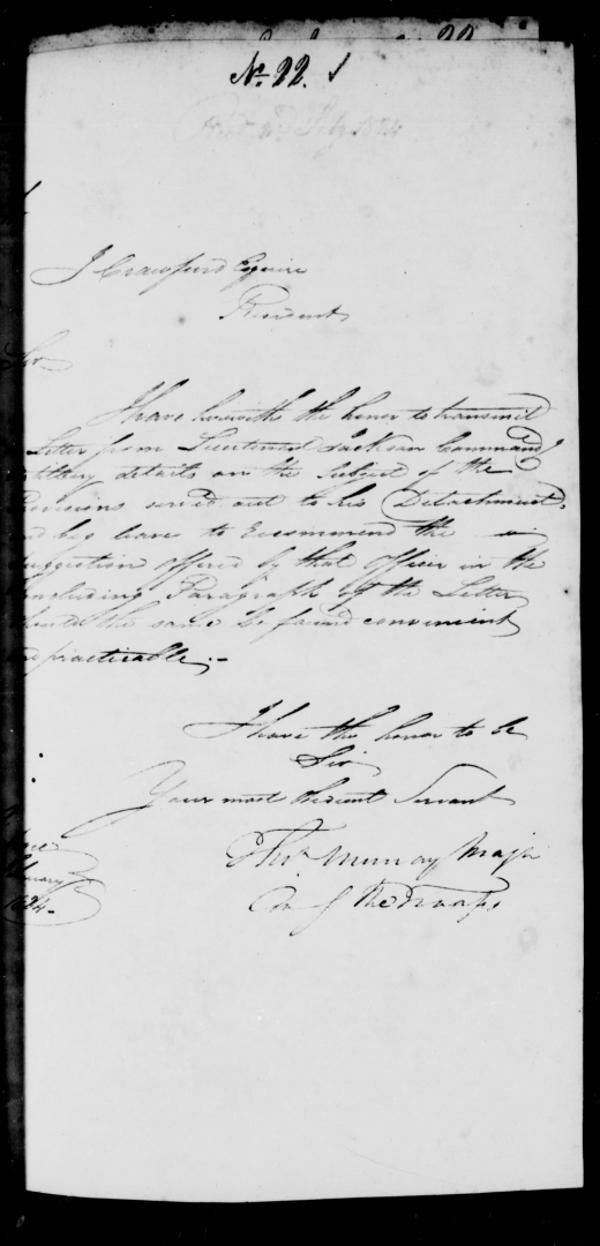 No. 22.
J Crawfurd Esquire
Resident
Sir
I have herewith the honor to transmit
Letter from Lieutenant Jackson Command
details on the Subject of the
serv'd out to his Detachment,
beg leave to recommend the
suggestion offered by that Officer in the
concluding Paragraph of the Letter
the same be found convenient
practicable;-
I have the honor to be
Sir
Your most obedient Servant
Murray Major
Comg The Troops
1824-